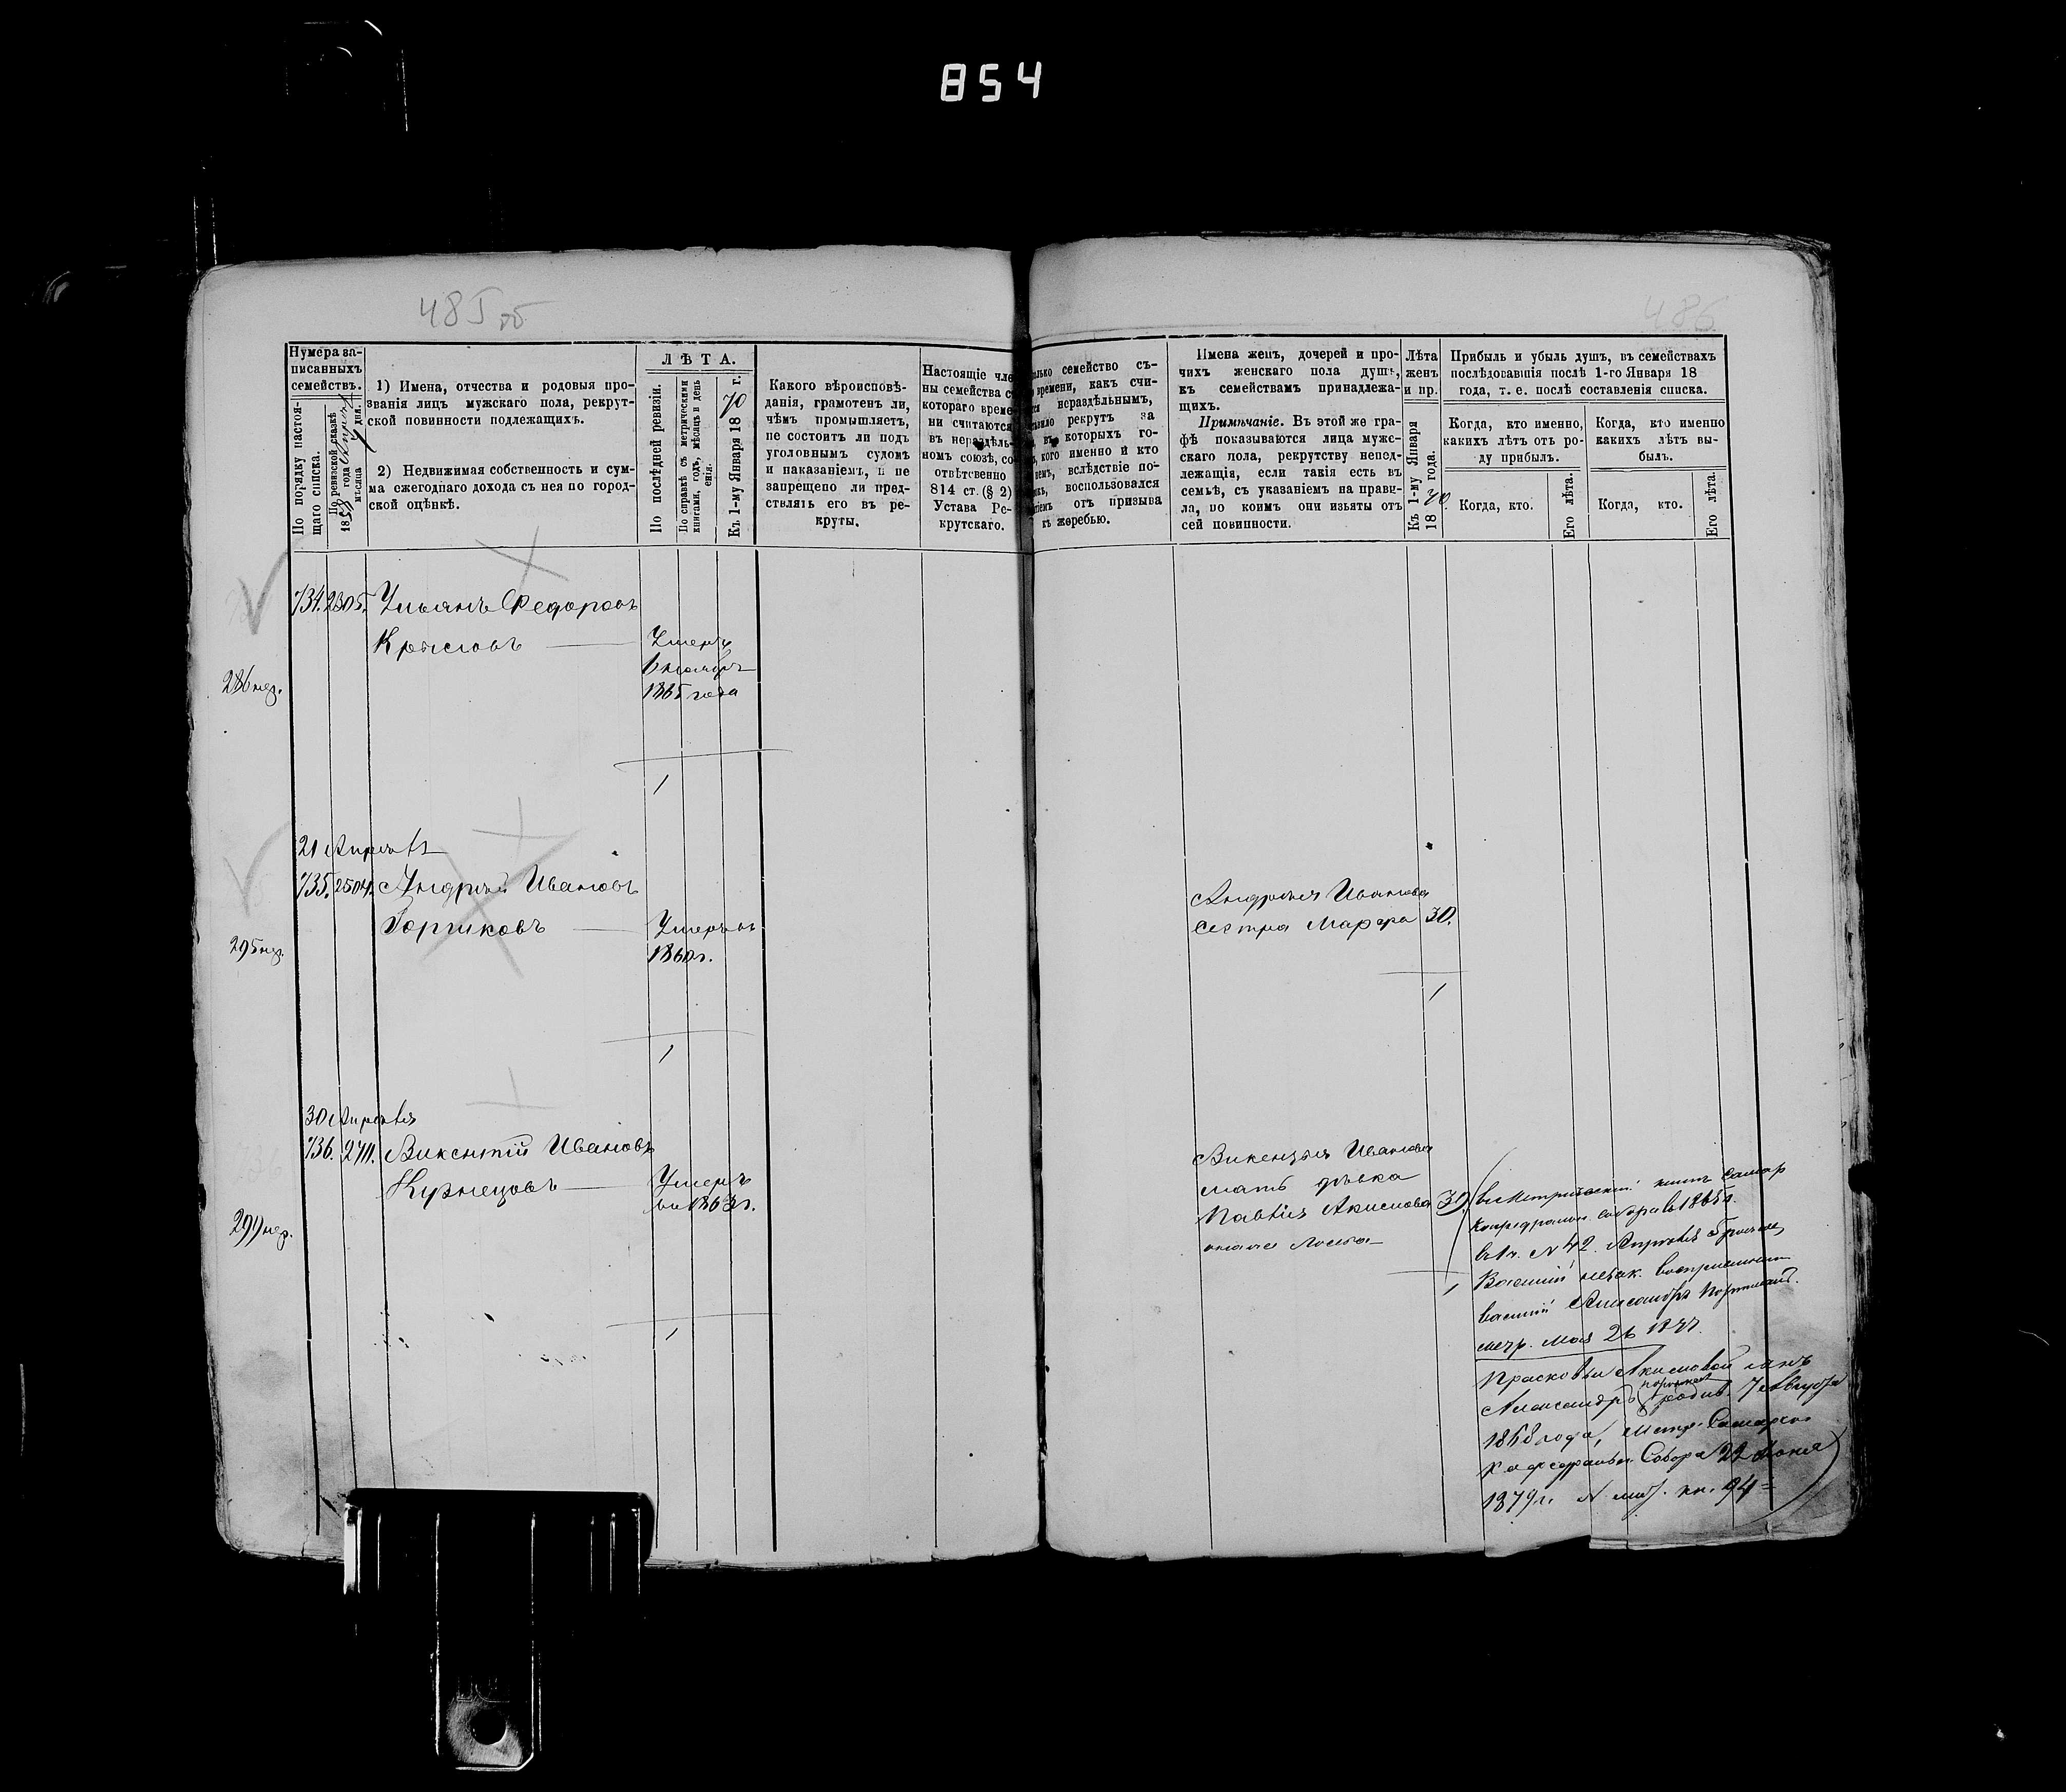 854
485 об
486
Нумера за-
писанныхъ
семействъ.
По порядку настоя-
щаго списка.
По ревизской сказкѣ
1858 года Апрѣля
мѣсяца дня.
1) Имена, отчества и родовыя про-
званія лицъ мужскаго пола, рекрут-
ской повинности подлежащихъ.
2) Недвижимая собственность и сум-
ма ежегоднаго дохода съ нея по город-
ской оцѣнкѣ.
ЛѢТА.
По послѣдней ревизіи.
По справкѣ съ метрическими
книгами, годъ, мѣсяцъ и день
Къ 1-му Января 1870 г.
Какого вѣроисповѣ-
данія, грамотенъ ли,
чѣмъ промышляетъ,
не состоитъ ли подъ
уголовнымъ судомъ
и наказаніемъ, и не
запрещено ли пред-
ствлять его въ ре-
круты.
Настоящіе чле
ны семейства с
котораго време-
ни считаются
въ нераздѣль-
номъ союзѣ, со-
отвѣтсвенно
814 ст. (§ 2)
Устава Ре-
крутскаго.
олько семейство съ-
времени, какъ счи-
нераздѣльнымъ,
рекрутъ за
которыхъ го-
кого именно и кто
вслѣдствіе по-
воспользовался
отъ призыва
къ жеребью.
Имена женъ, дочерей и про-
чихъ женскаго пола душъ,
къ семействамъ принадлежа-
щихъ.
Примѣчаніе. Въ этой же гра-
фѣ показываются лица мужс-
скаго пола, рекрутству непод-
лежащія, если такія есть въ
семьѣ, съ указаніемъ на прави-
ла, по коимъ они изъяты отъ
сей повинности.
Лѣта
женъ
и пр.
Къ 1-му Января
1870 года.
Прибыль и убыль душъ, въ семействахъ
послѣдовавшія послѣ 1-го Января 18
года, т. е. послѣ составленія списка.
Когда, кто именно,
какихъ лѣтъ отъ ро-
ду прибылъ.
Когда, кто именно
какихъ лѣтъ вы-
былъ.
Когда, кто.
Его лѣта.
Когда, кто.
Его лѣта.
734. 2305. Ульянъ Федоровъ
Крысловъ — Умеръ
1865 года
286 нед.
1
21 Апрѣля
735. 2504. Андрей Ивановъ
Горшковъ — Умеръ въ
1860 г.
295 нед.
Андрея Иванова
сестра Марфа 30.
1
1
30 Апрѣля
736. 2711. Викентій Ивановъ
Кузнецовъ — Умеръ
въ 1863 г.
299 нед.
Викентья Иванова
мать дѣвка
Акимова 39.
1
1
въ Метрической книгѣ Самар
Кафедральн. собора въ 1865 г.
въ 1 ч. N 42. Апрѣля
Василій незак.
Василій Александръ
метр. Мая 26 1877.
Прасковьи Акимовой сынъ
Александръ родив. 7 Августа
1868 года, Метр. Самарск.
Кафедральн. Собора 22 Июня
1879 г. N 94